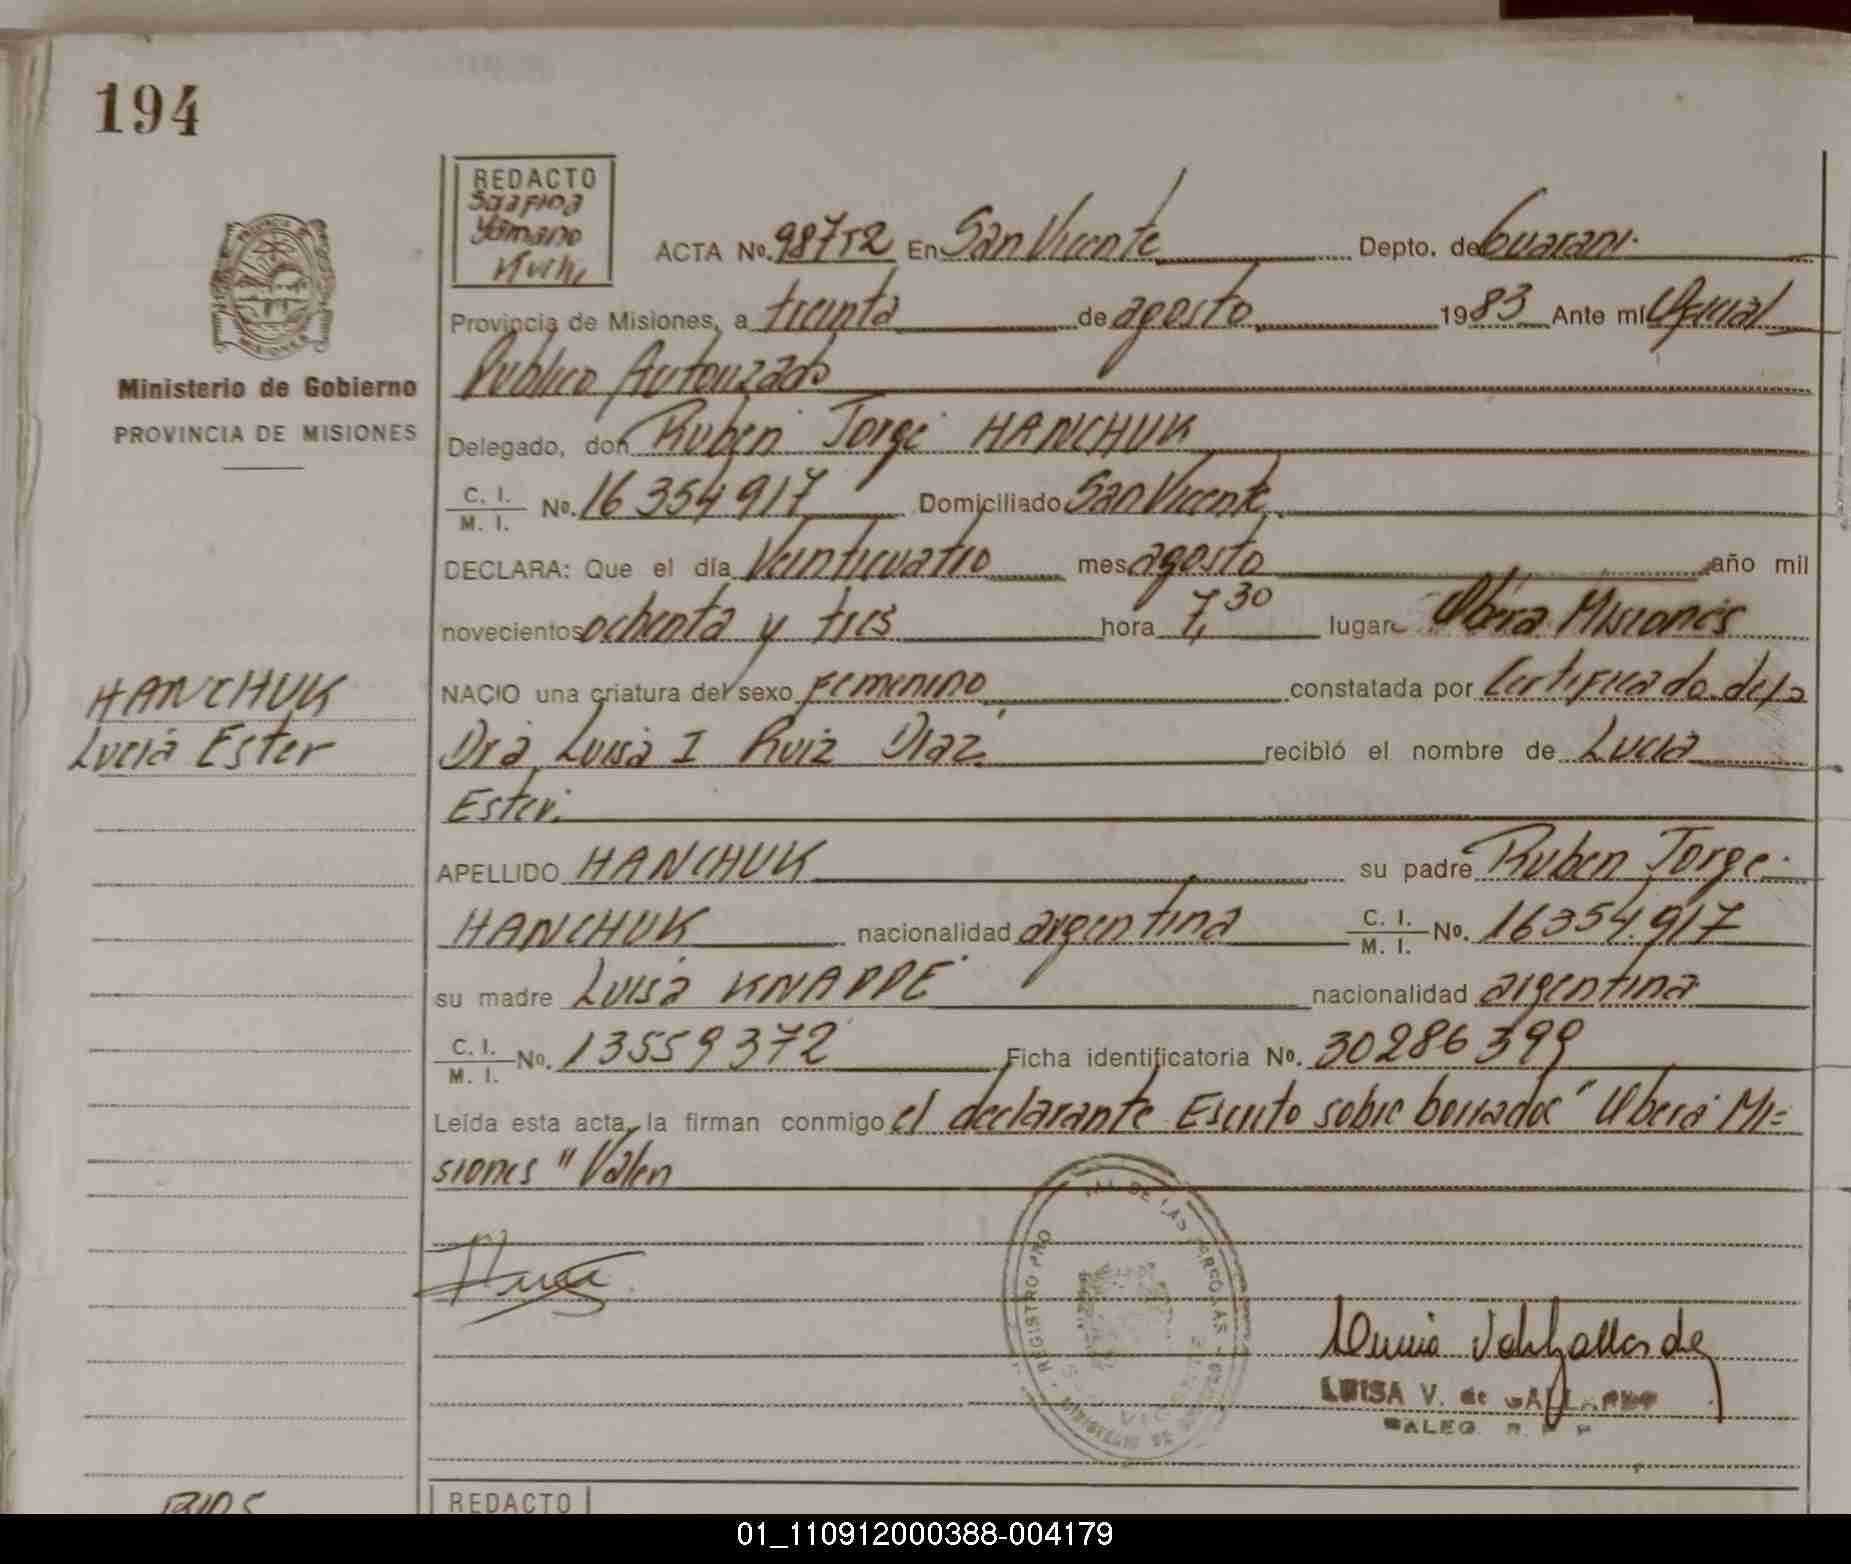 194
REDACTO
Serafina
Yamano
ACTA No. 98752 En San Vicente Depto. de Guarani.
Provincia de Misiones, a treinta de agosto 1983 Ante mi Oficial
Publico Autorizado
Ministerio de Gobierno
PROVINCIA DE MISIONES
Delegado, don Ruben Jorge HANCHUK
C. I.
M. I. No. 16 354 917 Domiciliado San Vicente.
DECLARA: Que el día Veinticuatro mes agosto año mil
novecientos ochenta y tres hora 7,30 lugar Obera Misiones
NACIO una criatura del sexo femenino constatada por Certificado de la
HANCHUK
Lucia Ester
Dra Luisa I Ruiz Diaz. recibió el nombre de Lucia
Ester.
APELLIDO HANCHUK su padre Ruben Jorge
HANCHUK nacionalidad argentina C. I.
M. I. No. 16354.917
su madre Luisa KNAPPE nacionalidad argentina
C. I.
M. I. No. 13559372 Ficha identificatoria No. 30286399
Leída esta acta, la firman conmigo el declarante Escrito sobre borrados " Obera Mi=
siones " Valen
REGISTRO PRO
DE LAS PERSONAS
LUISA V. de GALLARDO
REDACTO
01_110912000388-004179